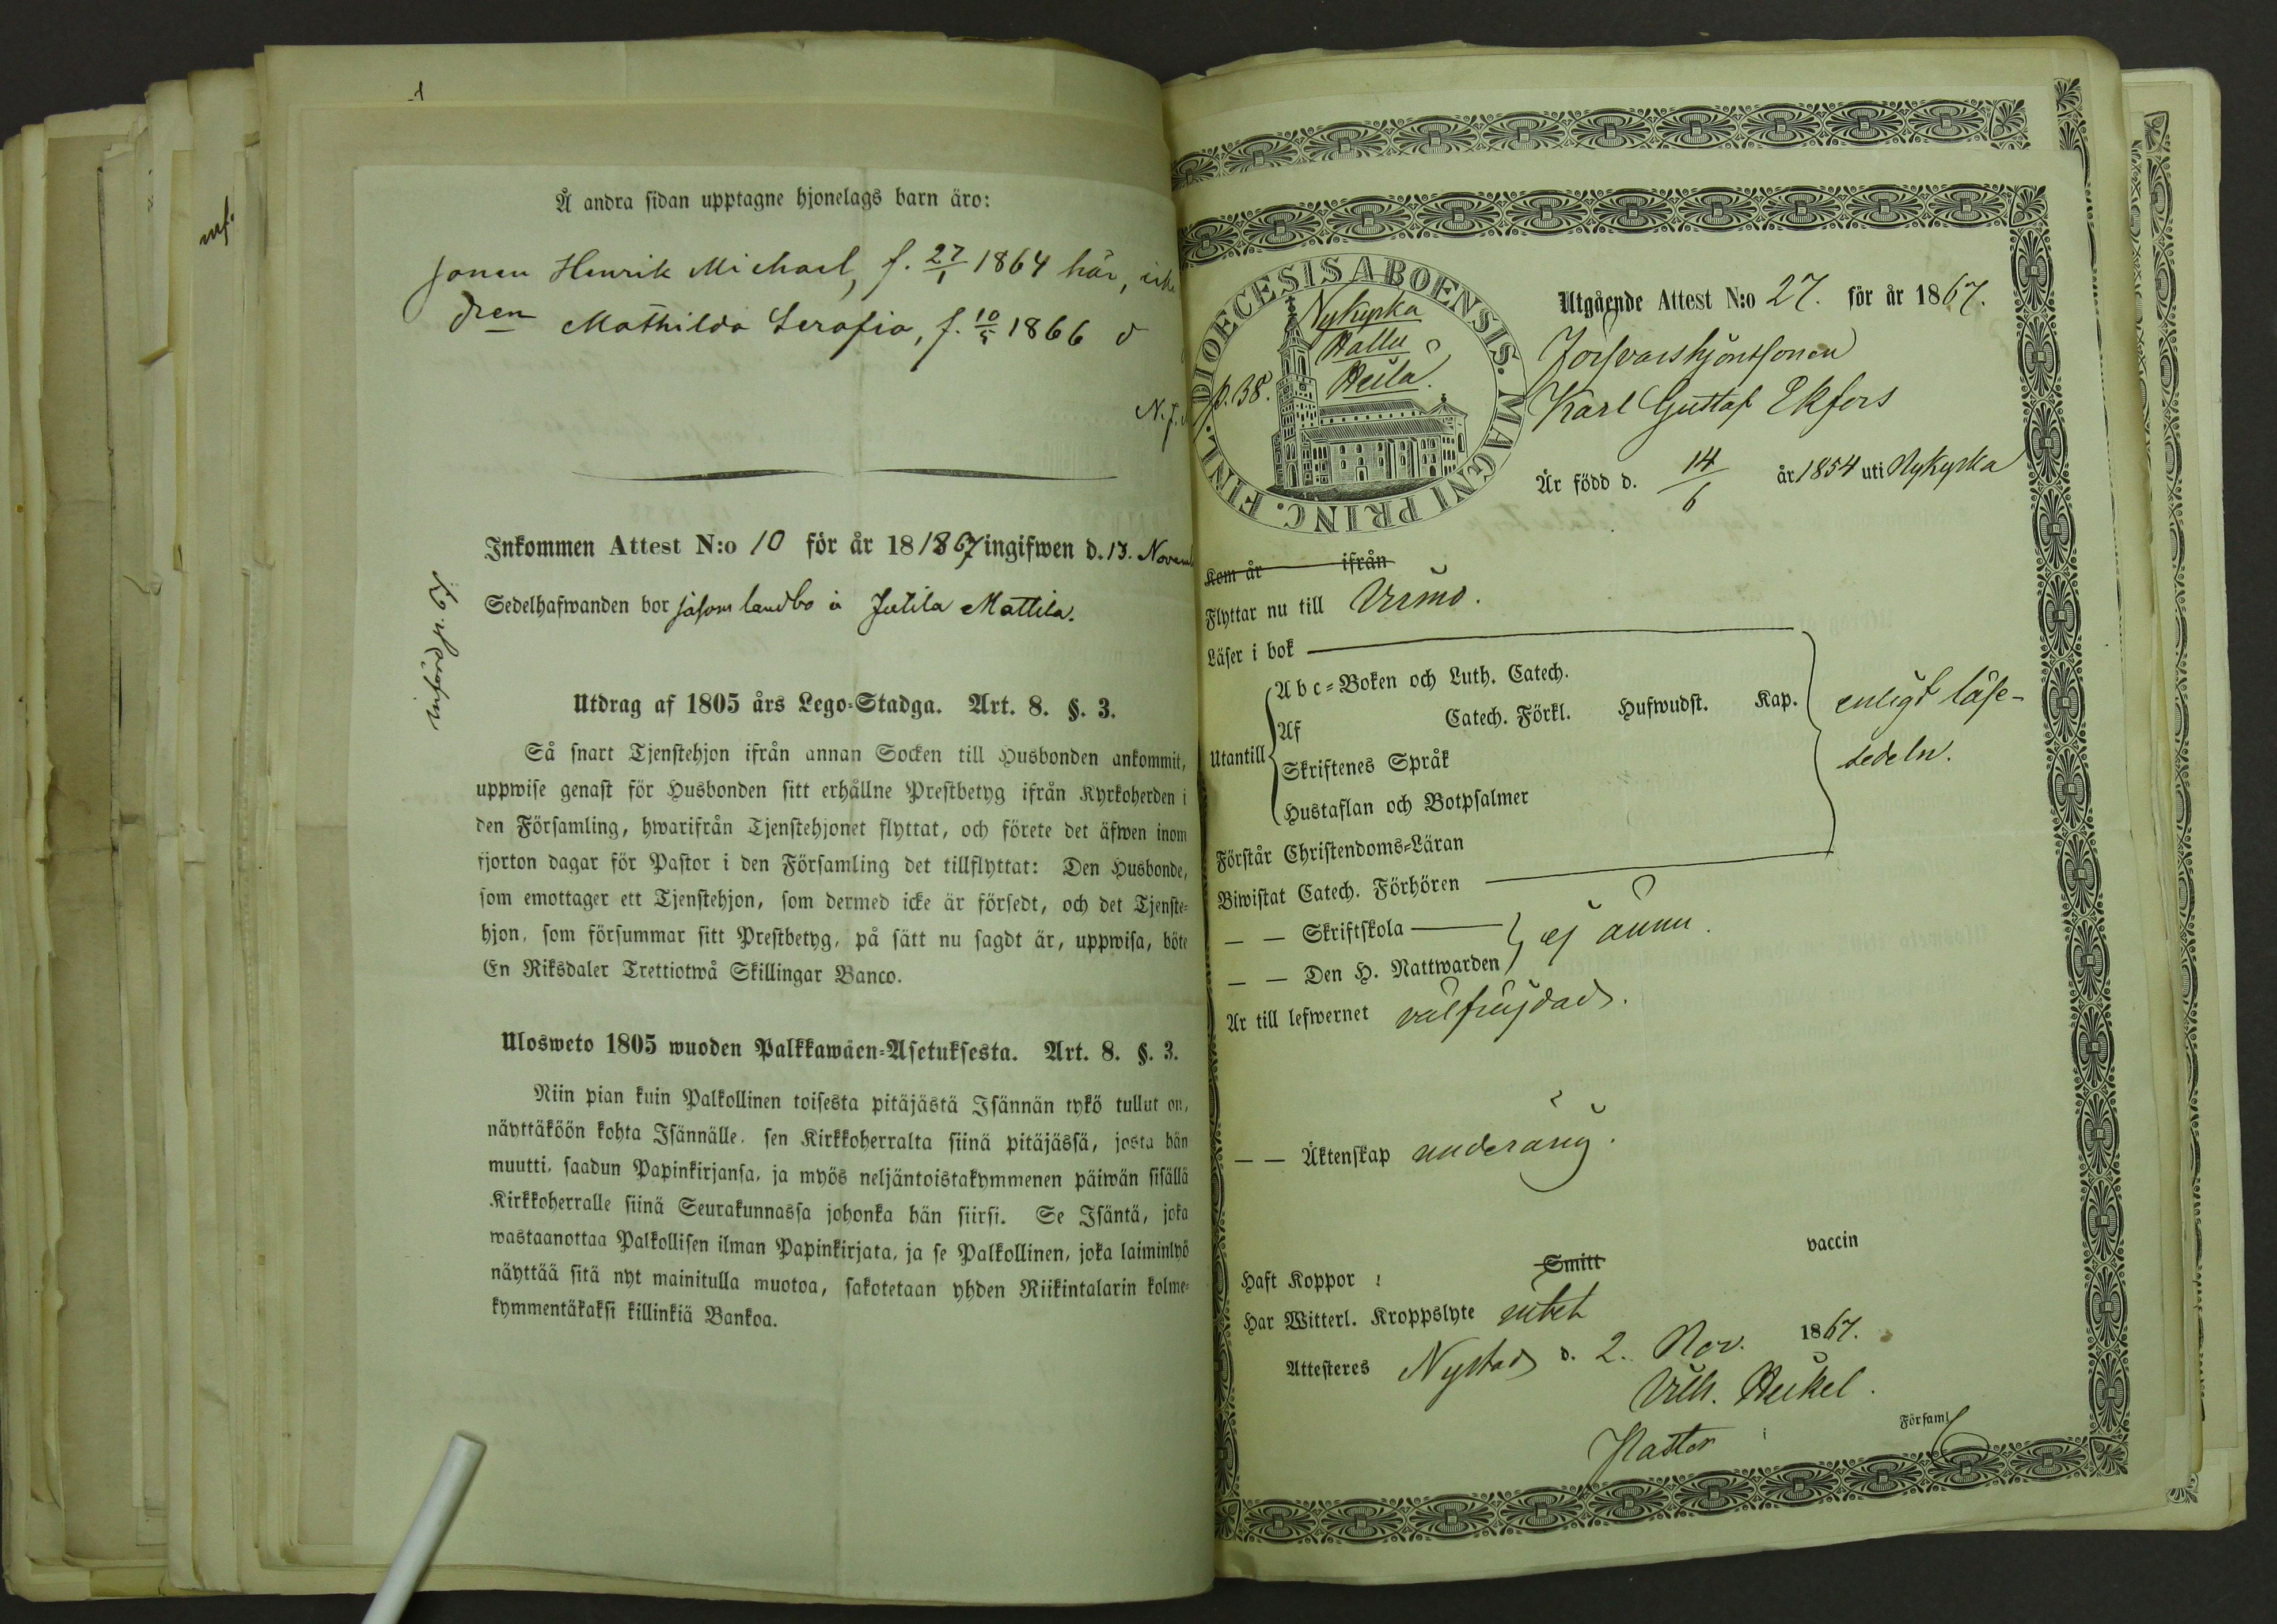 Å andra sidan upptagne hjonelags barn äro:
sonen Henrik Michael, f. 27/1 1864 här,
dren Mathilda Serafia, f. 10/5 1866 d
N. f.
Inkommen Attest N:o 10 för år 18 1867 ingifwen d. 13. Novemb
Sedelhafwanden bor såsom landbo å Jutila Mattila.
införd p. 67
Utdrag af 1805 års Lego-Stadga. Art. 8. §. 3.
Så snart Tjenstehjon ifrån annan Socken till Husbonden ankommit,
uppwise genast för Husbonden sitt erhållne Prestbetyg ifrån Kyrkoherden i
den Församling, hwarifrån Tjenstehjonet flyttat, och förete det äfwen inom
fjorton dagar för Pastor i den Församling det tillflyttat: Den Husbonde,
som emottager ett Tjenstehjon, som dermed icke är försedt, och det Tjenste-
hjon, som försummar sitt Prestbetyg, på sätt nu sagdt är, uppwisa, böte
En Riksdaler Trettiotwå Skillingar Banco.
Ulosweto 1805 wuoden Palkkawäen-Asetuksesta. Art. 8. §. 3.
Niin pian kuin Palkollinen toisesta pitäjästä Isännän tykö tullut on,
näyttäköön kohta Isännälle, sen Kirkkoherralta siinä pitäjässä, josta hän
muutti, saadun Papinkirjansa, ja myös neljäntoistakymmenen päiwän sisällä
Kirkkoherralle siinä Seurakunnassa johonka hän siirsi. Se Isäntä, joka
wastaanottaa Palkollisen ilman Papinkirjata, ja se Palkollinen, joka laiminlyö
näyttää sitä nyt mainitulla muotoa, sakotetaan yhden Riikintalarin kolme-
kymmentäkaksi killinkiä Bankoa.
DIOECESIS ABOENSIS. MAGNI PRINC. FINL.
Nykyrka
Hallu
Heilä.
p. 38.
Utgående Attest N:o 27. för år 1867.
Försvarshjonssonen
Karl Gustaf Ekfors
Är född d. 14/6 år 1854 uti Nykyrka
Kom år ifrån
Flyttar nu till Virmo.
Läser i bok
Utantill
Abc-Boken och Luth. Catech.
Af Catech. Förkl. Hufwudst. Kap.
Skriftenes Språk
Hustaflan och Botpsalmer
enligt läse-
sedeln.
Förstår Christendoms-Läran
Biwistat Catech. Förhören
— — Skriftskola
— — Den H. Nattwarden
ej ännu.
Är till lefwernet välfrejdad.
— — Äktenskap underårig.
Haft Koppor: Smitt vaccin
Har Witterl. Kroppslyte intet
Attesteres Nystad d. 2. Nov. 1867.
Vilh. Heikel.
Pastor i Församl